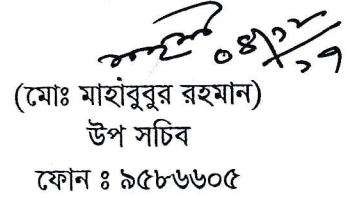 ০৪/১২/১৭
(মোঃ মাহাবুবুর রহমান)
উপ সচিব
ফোন ঃ ৯৫৮৬৬০৫